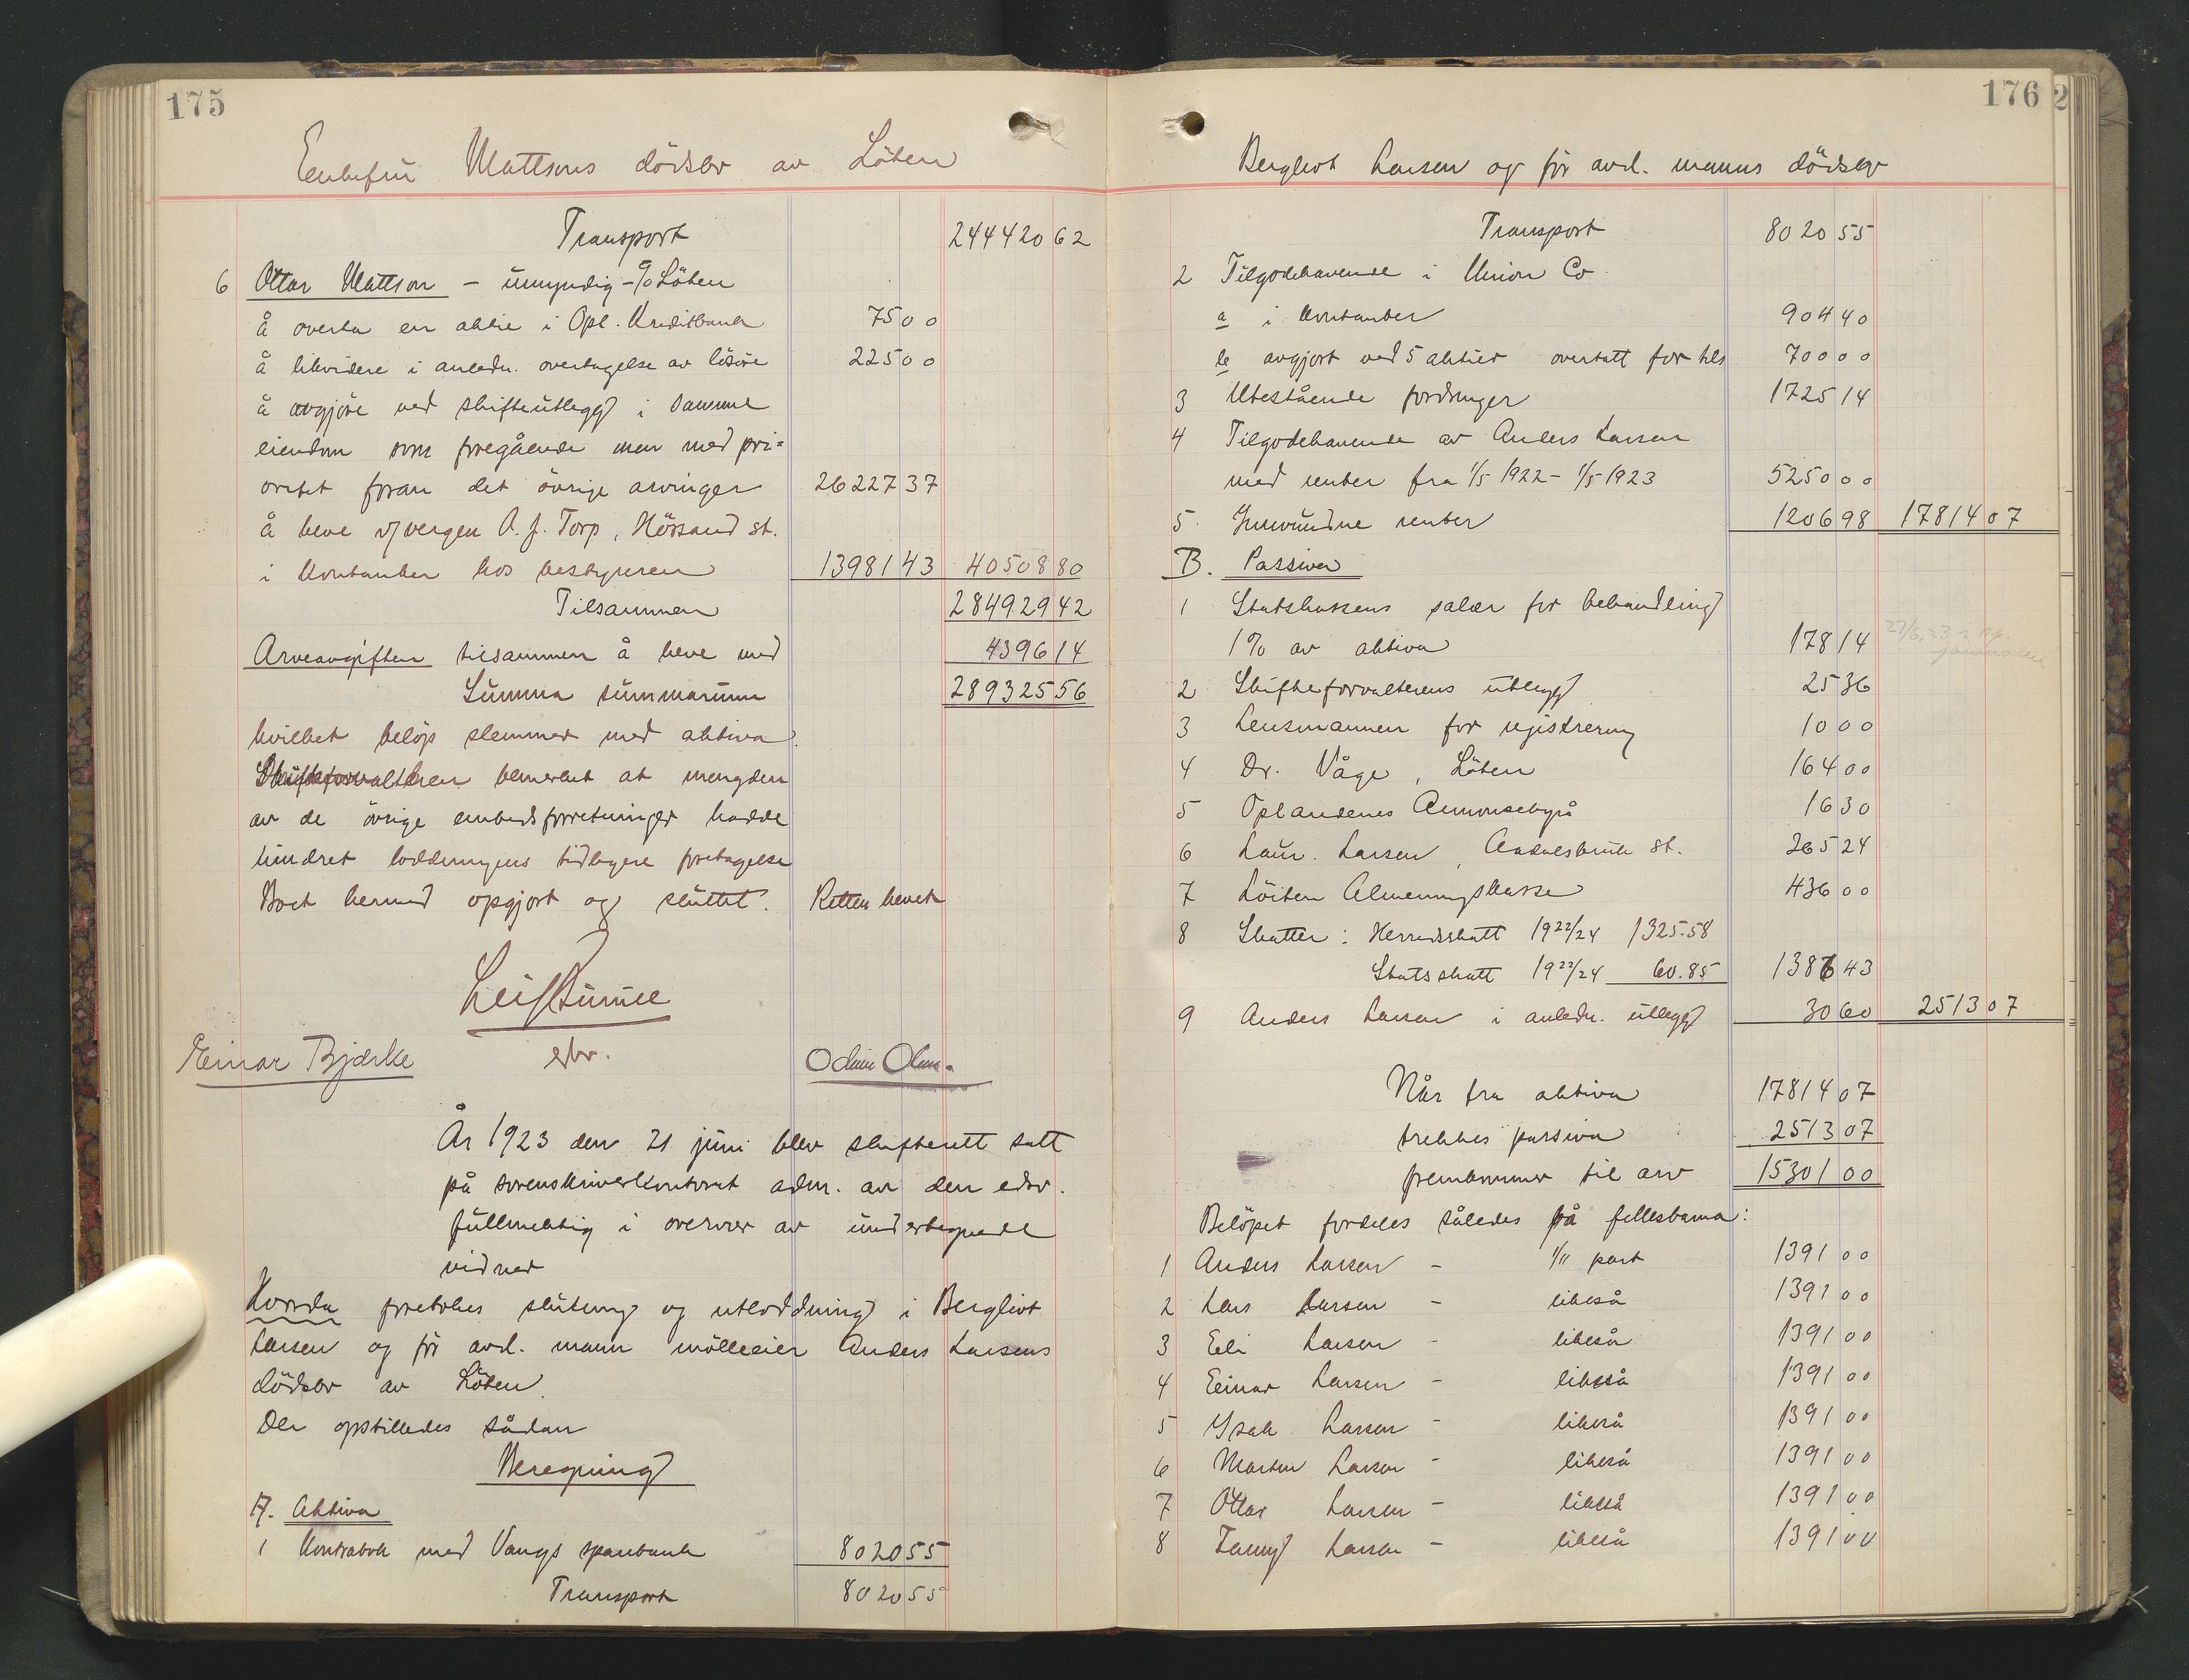 175
Enkefru Mattsons dödsbo av Löten
Transport 244420 62
6 Ottar Mattson - umyndig - % Löten
å overta en aktie i Opl. Kreditbank 75 00
å likvidere i anledn. overtagelse av lösöre 225 00
å avgjöre ved skifteutlegg i samme
eiendom som foregående men med pri=
oritet foran det övrige arvinger 26227 37
å heve v/ vergen A. J. Torp, Hörsand st.
i kontanter hos bestyreren 13981 43 40508 80
Tilsammen 284929 42
Arveavgiften tilsammen å heve med 4396 14
Summa summarum 289325 56
hvilket belöp stemmer med aktiva.
Skifteforvalteren bemerket at mengden
av de övrige embedsforretninger hadde
hindret loddningens tidligere foretagelse
Boet hermed opgjort og sluttet. Retten hevet

Einar Bjørke
År 1923 den 21 juni blev skifterett satt
på sorenskriverkontoret adm. av den edsv.
fullmektig i overvær av undertegnede
vidner
Hvorda foretokes slutning og utloddning i Bergliot
Larsen og för avd. mann mölleeier Anders Larsens
dödsbo av Löten.
Der opstilledes sådan
Beregning
A. Aktiva
1 Kontrabok med Vangs sparebank 8020 55
Transport 8020 55
176
2
Bergliot Larsen og för avd. manns dödsbo
Transport 8020 55
2 Tilgodehavende i Union Co
a i kontanter 904 40
b avgjort ved 5 aktier overtatt for tils 700 00
3 Utestående fordringer 1725 14
4 Tilgodehavende av Anders Larsen
med renter fra 1/5 1922 - 1/5 1923 5250 00
5 Innvundne renter 1206 98 17814 07
B. Passiva
1 Statskassens salær for behandling
1% av aktiva 178 14
2 Skifteforvalterens utlegg 25 36
3 Lensmannen for registrering 10 00
4 Dr. Våge, Löten 164 00
5 Oplandenes Annonsebyrå 16 30
6 Laur. Larsen, Aadalsbruk st. 265 24
7 Löiten Almenningskasse 436 00
8 Skatter: Herredsskatt 1922/24 1325.58
Statsskatt 1922/24 60.85 1386 43
9 Anders Larsen i anledn. utlegg 30 60 2513 07
Når fra aktiva 17814 07
trekkes passiva 2513 07
fremkommer til arv 15301 00
Belöpet fordeles således på fellesbarna:
1 Anders Larsen - 1/11 part 1391 00
2 Lars Larsen - likeså 1391 00
3 Eli Larsen - likeså 1391 00
4 Einar Larsen - likeså 1391 00
5 Isak Larsen - likeså 1391 00
6 Marten Larsen - likeså 1391 00
7 Ottar Larsen - likeså 1391 00
8 Fanny Larsen - likeså 1391 00